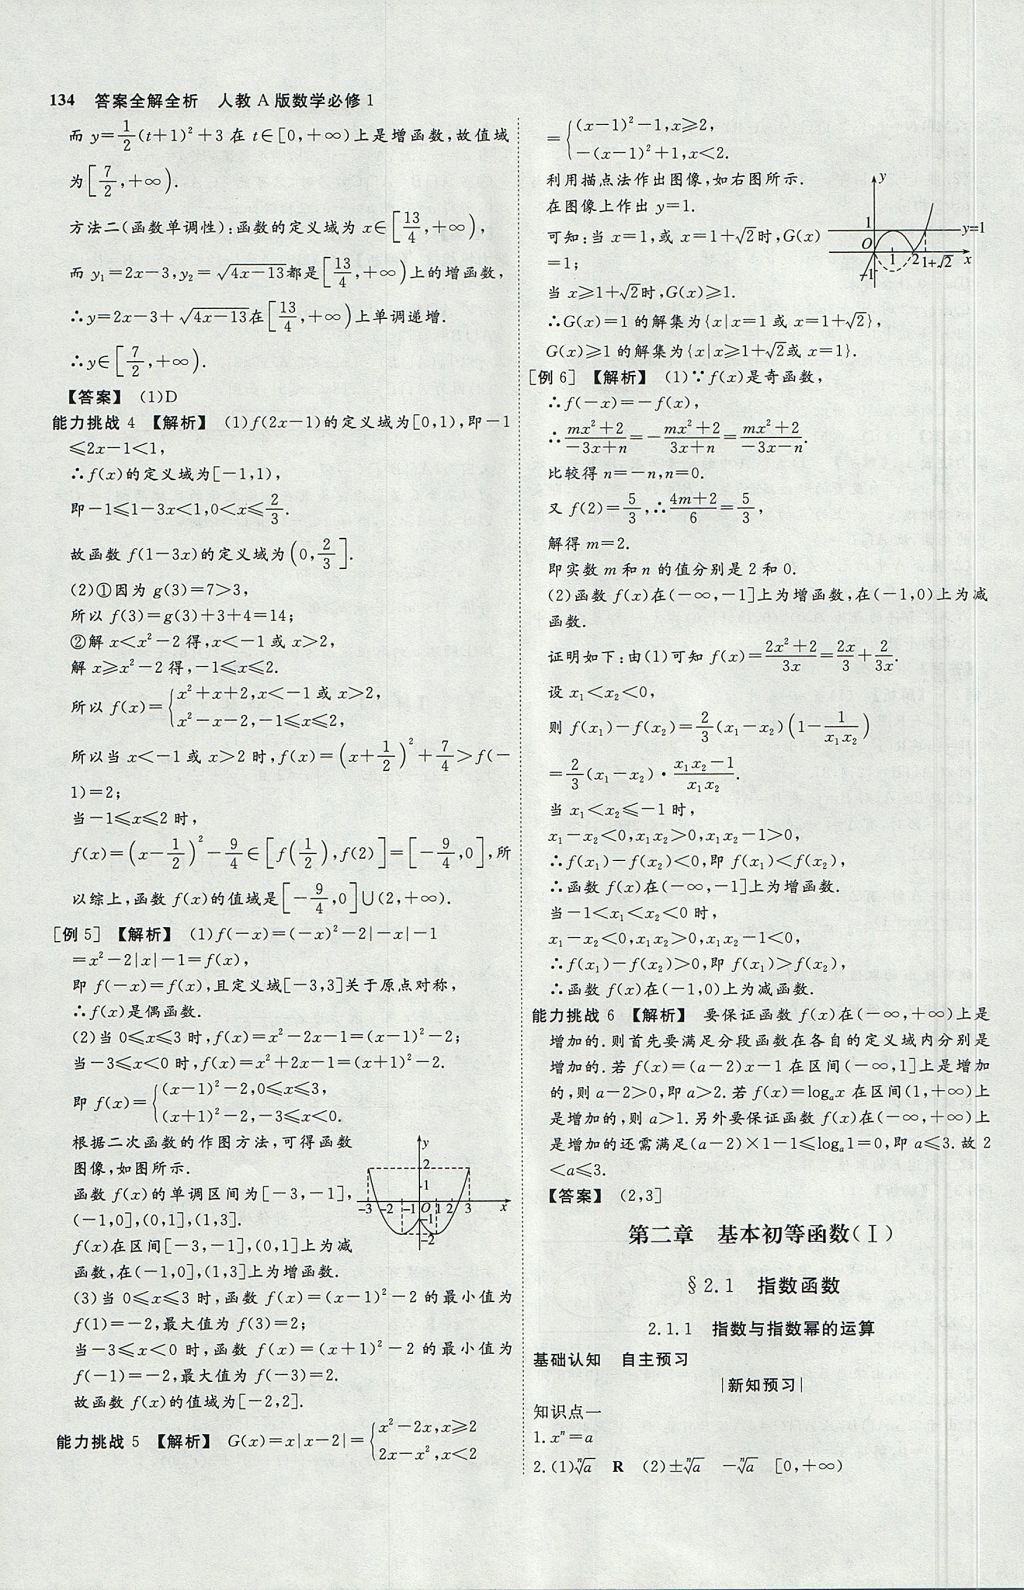 134 答案全解全析 人教 A 版数学必修 1
而 y=1/2(t+1)²+3 在 t∈[0,+∞)上是增函数,故值域
为[7/2,+∞).
方法二(函数单调性):函数的定义域为 x∈[13/4,+∞),
而 y₁=2x-3,y₂=√(4x-13)都是[13/4,+∞)上的增函数,
∴y=2x-3+√(4x-13)在[13/4,+∞)上单调递增.
∴y∈[7/2,+∞).
【答案】 (1)D
能力挑战 4 【解析】 (1)f(2x-1)的定义域为[0,1),即-1
≤2x-1<1,
∴f(x)的定义域为[-1,1),
即-1≤1-3x<1,0<x≤2/3.
故函数 f(1-3x)的定义域为(0,2/3].
(2)①因为 g(3)=7>3,
所以 f(3)=g(3)+3+4=14;
②解 x<x²-2 得,x<-1 或 x>2,
解 x≥x²-2 得,-1≤x≤2.
所以 f(x)={x²+x+2,x<-1 或 x>2,
x²-x-2,-1≤x≤2,
所以当 x<-1 或 x>2 时,f(x)=(x+1/2)²+7/4>f(-
1)=2;
当-1≤x≤2 时,
f(x)=(x-1/2)²-9/4∈[f(1/2),f(2)]=[-9/4,0],所
以综上,函数 f(x)的值域是[-9/4,0]∪(2,+∞).
[例 5] 【解析】 (1)f(-x)=(-x)²-2|-x|-1
=x²-2|x|-1=f(x),
即 f(-x)=f(x),且定义域[-3,3]关于原点对称,
∴f(x)是偶函数.
(2)当 0≤x≤3 时,f(x)=x²-2x-1=(x-1)²-2;
当-3≤x<0 时,f(x)=x²+2x-1=(x+1)²-2.
即 f(x)={(x-1)²-2,0≤x≤3,
(x+1)²-2,-3≤x<0.
根据二次函数的作图方法,可得函数
图像,如图所示.
函数 f(x)的单调区间为[-3,-1],
(-1,0],(0,1],(1,3].
f(x)在区间[-3,-1],(0,1]上为减
函数,在(-1,0],(1,3]上为增函数.
y
2
1
-3 -2 -1 O 1 2 3 x
-1
-2
(3)当 0≤x≤3 时,函数 f(x)=(x-1)²-2 的最小值为
f(1)=-2,最大值为 f(3)=2;
当-3≤x<0 时,函数 f(x)=(x+1)²-2 的最小值为
f(-1)=-2,最大值为 f(-3)=2.
故函数 f(x)的值域为[-2,2].
能力挑战 5 【解析】 G(x)=x|x-2|={x²-2x,x≥2
2x-x²,x<2
={(x-1)²-1,x≥2,
-(x-1)²+1,x<2.
利用描点法作出图像,如右图所示.
在图像上作出 y=1.
可知:当 x=1,或 x=1+√2时,G(x)
=1;
当 x≥1+√2时,G(x)≥1.
y
1 y=1
O 1 2 1+√2 x
-1
∴G(x)=1 的解集为{x|x=1 或 x=1+√2},
G(x)≥1 的解集为{x|x≥1+√2或 x=1}.
[例 6] 【解析】 (1)∵f(x)是奇函数,
∴f(-x)=-f(x),
∴(mx²+2)/(-3x+n)=-(mx²+2)/(3x+n)=(mx²+2)/(-3x-n).
比较得 n=-n,n=0.
又 f(2)=5/3,∴(4m+2)/6=5/3,
解得 m=2.
即实数 m 和 n 的值分别是 2 和 0.
(2)函数 f(x)在(-∞,-1]上为增函数,在(-1,0)上为减
函数.
证明如下:由(1)可知 f(x)=(2x²+2)/3x=2x/3+2/3x.
设 x₁<x₂<0,
则 f(x₁)-f(x₂)=2/3(x₁-x₂)(1-1/x₁x₂)
=2/3(x₁-x₂)·(x₁x₂-1)/x₁x₂.
当 x₁<x₂≤-1 时,
x₁-x₂<0,x₁x₂>0,x₁x₂-1>0,
∴f(x₁)-f(x₂)<0,即 f(x₁)<f(x₂),
∴函数 f(x)在(-∞,-1]上为增函数.
当-1<x₁<x₂<0 时,
x₁-x₂<0,x₁x₂>0,x₁x₂-1<0,
∴f(x₁)-f(x₂)>0,即 f(x₁)>f(x₂),
∴函数 f(x)在(-1,0)上为减函数.
能力挑战 6 【解析】 要保证函数 f(x)在(-∞,+∞)上是
增加的.则首先要满足分段函数在各自的定义域内分别是
增加的.若 f(x)=(a-2)x-1 在区间(-∞,1]上是增加
的,则 a-2>0,即 a>2.若 f(x)=logₐx 在区间(1,+∞)上
是增加的,则 a>1.另外要保证函数 f(x)在(-∞,+∞)上
是增加的还需满足(a-2)×1-1≤logₐ1=0,即 a≤3.故 2
<a≤3.
【答案】 (2,3]
第二章 基本初等函数(Ⅰ)
§2.1 指数函数
2.1.1 指数与指数幂的运算
基础认知 自主预习
|新知预习|
知识点一
1.xⁿ=a
2.(1)ⁿ√a R (2)±ⁿ√a -ⁿ√a [0,+∞)